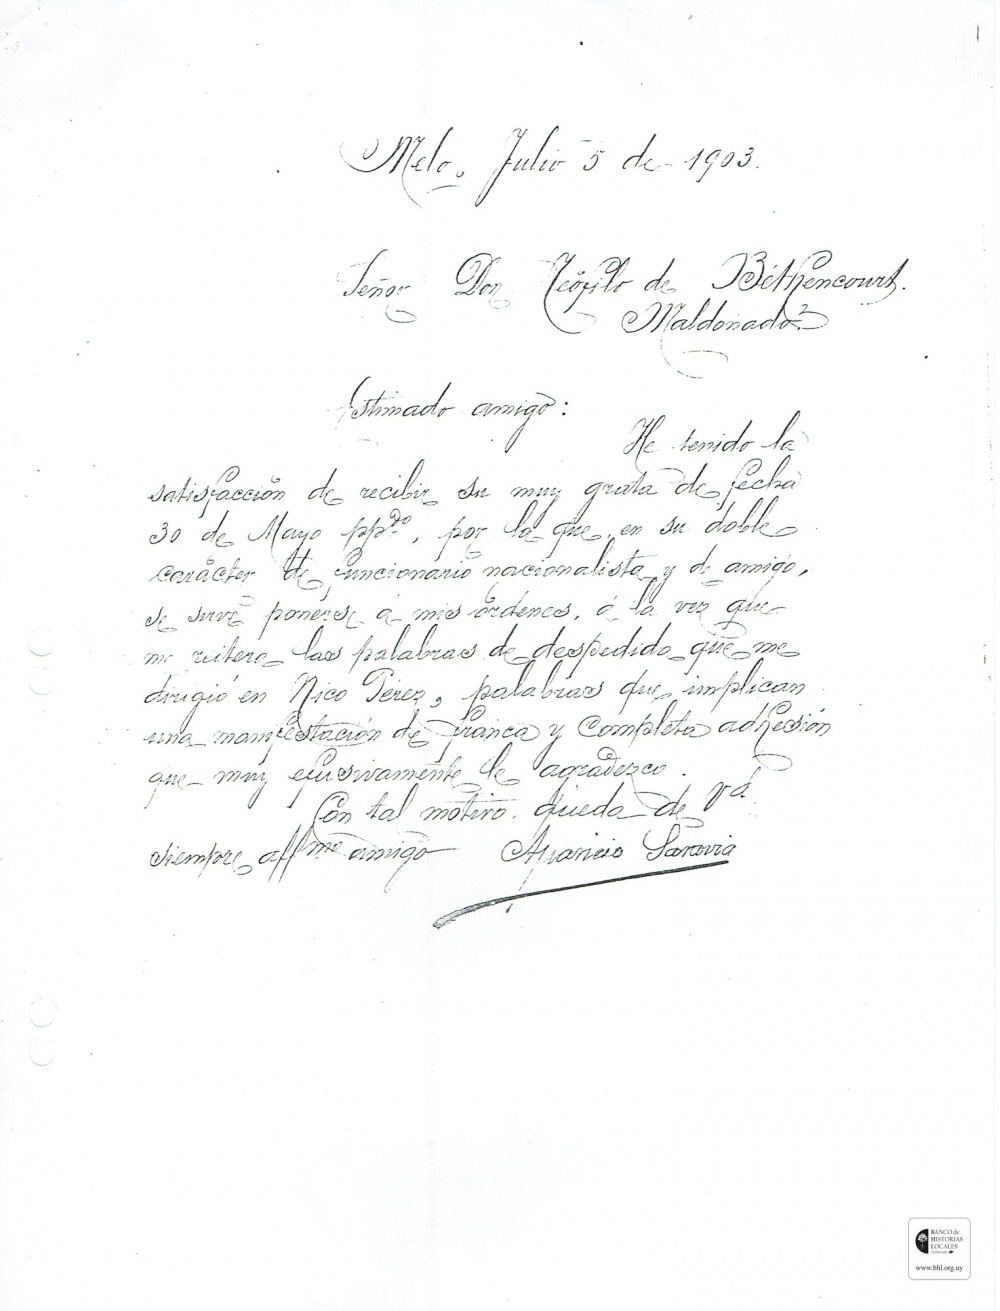 Melo, Julio 5 de 1903.
Señor Don Teófilo de Béthencourt.
Maldonado.
Estimado amigo:
He tenido la
satisfacción de recibir su muy grata de fecha
30 de Mayo ppdo, por la que, en su doble
carácter de funcionario nacionalista y de amigo,
se sirve ponerse á mis órdenes, á la vez que
me reitera las palabras de despedida que me
dirigió en Nico Pérez, palabras que implican
una manifestación de franca y completa adhesión
que muy efusivamente le agradezco.
Con tal motivo queda de Vd
siempre affmo amigo Aparicio Saravia
BANCO de
HISTORIAS
LOCALES
www.bhl.org.uy